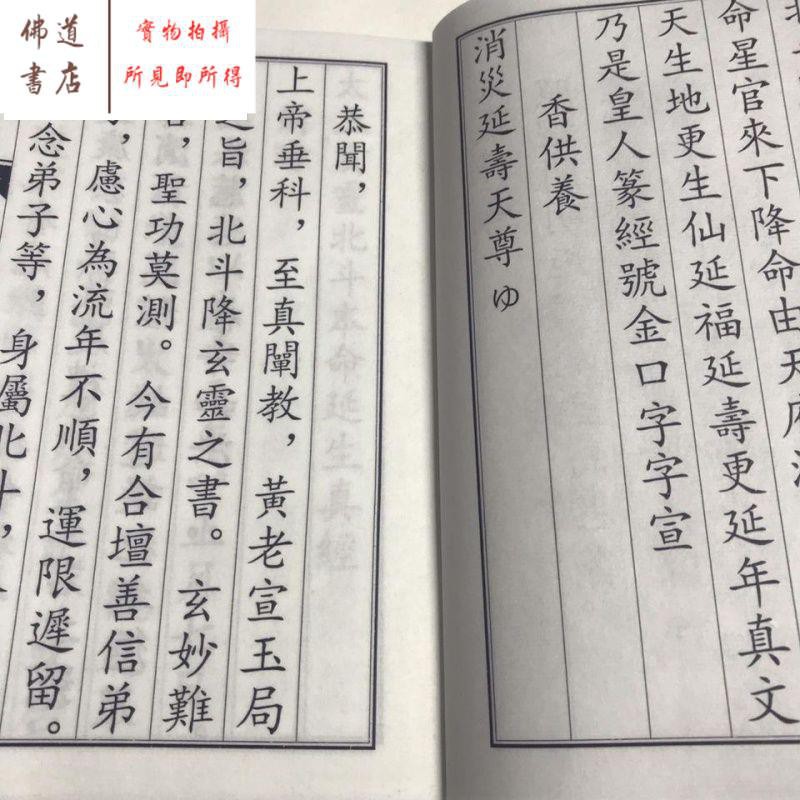 佛道
書店
實物拍攝
所見即所得
命星官來下降命由天府
天生地更生仙延福延壽更延年真文
乃是皇人篆經號金口字字宣
香供養
消災延壽天尊 ゆ
恭聞，
上帝垂科，至真闡教，黃老宣玉局
之旨，北斗降玄靈之書。玄妙難
，聖功莫測。今有合壇善信弟
，慮心為流年不順，運限遲留。
念弟子等，身屬北斗，